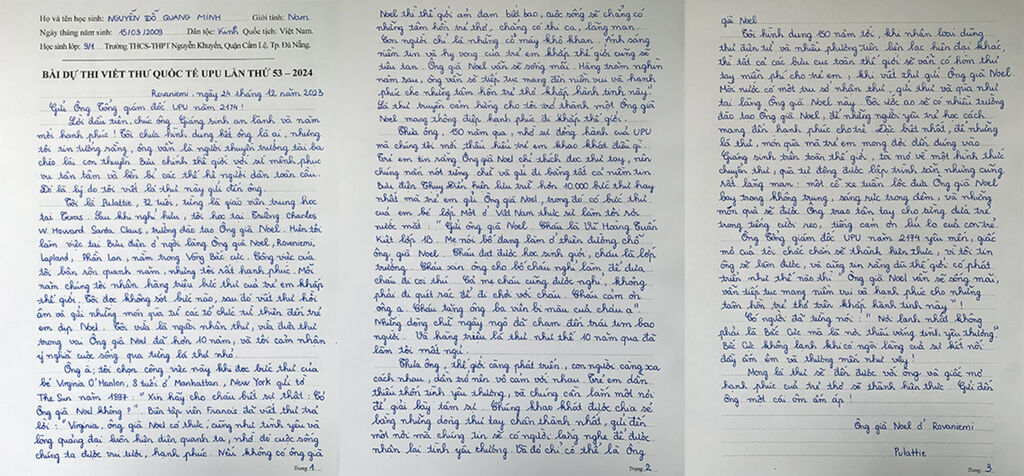 Họ và tên học sinh: NGUYỄN ĐỖ QUANG MINH Giới tính: Nam
Ngày tháng năm sinh: 15/03/2009 Dân tộc: Kinh Quốc tịch: Việt Nam.
Học sinh lớp: 9/1 Trường THCS-THPT Nguyễn Khuyến, Quận Cẩm Lệ, Tp. Đà Nẵng.
BÀI DỰ THI VIẾT THƯ QUỐC TẾ UPU LẦN THỨ 53 – 2024
Rovaniemi, ngày 24 tháng 12 năm 2023
Gửi Ông Tổng giám đốc UPU năm 2174!
Lời đầu tiên, chúc ông Giáng sinh an lành và năm
mới hạnh phúc! Tôi chưa hình dung hết ông là ai, nhưng
tôi tin tưởng rằng, ông vẫn là người thuyền trưởng tài ba
chèo lái con thuyền Bưu chính thế giới với sứ mệnh phục
vụ tận tâm và bền bỉ các thế hệ người dân toàn cầu.
Đó là lý do tôi viết lá thư này gửi đến ông.
Tôi là Pulattie, 72 tuổi, từng là giáo viên trung học
tại Texas. Sau khi nghỉ hưu, tôi học tại Trường Charles
W. Howard Santa Claus, trường đào tạo Ông già Noel. Hiện tôi
làm việc tại Bưu điện ở ngôi làng Ông già Noel, Rovaniemi,
Lapland, Phần Lan, nằm trong Vòng Bắc cực. Công việc của
tôi bận rộn quanh năm, nhưng tôi rất hạnh phúc. Mỗi
năm chúng tôi nhận hàng triệu bức thư của trẻ em khắp
thế giới. Tôi đọc không sót bức nào, sau đó viết thư hồi
âm và gửi những món quà từ các tổ chức từ thiện đến trẻ
em dịp Noel. Tôi vừa là người nhận thư, vừa đưa thư
trong vai Ông già Noel đã hơn 10 năm, và tôi cảm nhận
ý nghĩa cuộc sống qua từng lá thư nhỏ.
Ông ạ, tôi chọn công việc này khi đọc bức thư của
bé Virginia O'Hanlon, 8 tuổi ở Manhattan, New York gửi tờ
The Sun năm 1897: "Xin hãy cho cháu biết sự thật: Có
Ông già Noel không?". Biên tập viên Francis đã viết thư trả
lời: "Virginia, ông già Noel có thực, cũng như tình yêu và
lòng quảng đại luôn hiện diện quanh ta, nhờ đó cuộc sống
chúng ta được vui tươi, hạnh phúc. Nếu không có ông già
Trang 1
Noel thì thế giới ảm đạm biết bao, cuộc sống sẽ chẳng có
những tâm hồn trẻ thơ, chẳng có thi ca, lãng mạn.
Con người chỉ là những cỗ máy khô khan. Ánh sáng
niềm tin và hy vọng của trẻ em khắp thế giới cũng sẽ
tiêu tan. Ông già Noel vẫn sẽ sống mãi. Hàng trăm nghìn
năm sau, ông vẫn sẽ tiếp tục mang đến niềm vui và hạnh
phúc cho những tâm hồn trẻ thơ khắp hành tinh này".
Lá thư truyền cảm hứng cho tôi trở thành một Ông già
Noel mang thông điệp hạnh phúc đi khắp thế giới.
Thưa ông, 150 năm qua, nhờ sự đồng hành của UPU
mà chúng tôi mới thấu hiểu trẻ em khao khát điều gì.
Trẻ em tin rằng Ông già Noel chỉ thích đọc thư tay, nên
chúng nắn nót từng chữ và gửi đi bằng tất cả niềm tin.
Bưu điện Thụy Điển hiện lưu trữ hơn 10.000 bức thư hay
nhất mà trẻ em gửi Ông già Noel, trong đó có bức thư
của em bé lớp Một ở Việt Nam thực sự làm tôi rơi
nước mắt: "Gửi ông già Noel. Cháu là Vĩ Hoàng Tuấn
Kiệt lớp 1B. Mẹ nói bố đang làm ở thiên đường chỗ
ông già Noel. Cháu đạt được học sinh giỏi, cháu là lớp
trưởng. Cháu xin ông cho bố cháu nghỉ làm để đưa
cháu đi coi thú. Cô mẹ cháu cũng được nghỉ, không
phải đi quét rác để đi chơi với cháu. Cháu cảm ơn
ông ạ. Cháu tặng ông ba viên bi màu của cháu ạ".
Những dòng chữ ngây ngô đã chạm đến trái tim bao
người. Và hàng triệu lá thư như thế 10 năm qua đã
làm tôi mất ngủ.
Thưa ông, thế giới càng phát triển, con người càng xa
cách nhau, dần trở nên vô cảm với nhau. Trẻ em dần
thiếu thốn tình yêu thương, và chúng cần tìm một nơi
để giãi bày tâm sự. Chúng khao khát được chia sẻ
bằng những dòng thư tay chân thành nhất, gửi đến
một nơi mà chúng tin sẽ có người lắng nghe để được
nhận lại tình yêu thương. Và đó chỉ có thể là Ông
Trang 2
già Noel
Tôi hình dung 150 năm tới, khi nhân loại dùng
thư điện tử và nhiều phương tiện liên lạc hiện đại khác,
thì tất cả các bưu cục toàn thế giới sẽ vẫn có hòm thư
tay miễn phí cho trẻ em, khi viết thư gửi Ông già Noel.
Mỗi nước có một trụ sở nhận thư, gửi thư và quà như
tại làng Ông già Noel này. Tôi ước ao sẽ có nhiều trường
đào tạo Ông già Noel, để những người yêu trẻ học cách
mang đến hạnh phúc cho trẻ. Đặc biệt nhất, để những
lá thư, món quà mà trẻ em mong đợi đến đúng vào
Giáng sinh trên toàn thế giới, ta mơ về một hình thức
chuyển thư, quà tự động được lập trình sẵn nhưng cũng
rất lãng mạn: một cỗ xe tuần lộc đưa Ông già Noel
bay trong không trung, sáng rực trong đêm, và những
món quà sẽ được Ông trao tận tay cho từng đứa trẻ
trong tiếng cười reo, tiếng cảm ơn líu lo của con trẻ.
Ông Tổng giám đốc UPU năm 2174 yêu mến, giấc
mơ của tôi chắc chắn sẽ thành hiện thực, vì tôi tin
ông sẽ làm được, và cũng tin rằng dù thế giới có phát
triển như thế nào thì "Ông già Noel vẫn sẽ sống mãi,
vẫn tiếp tục mang niềm vui và hạnh phúc cho những
tâm hồn trẻ thơ trên khắp hành tinh này"!
Có người đã từng nói: "Nơi lạnh nhất không
phải là Bắc Cực mà là nơi thiếu vắng tình yêu thương".
Bắc Cực không lạnh khi có ngôi làng của sự kết nối
đầy ấm êm và thương mến như vậy!
Mong lá thư sẽ đến được với ông và giấc mơ
hạnh phúc của trẻ thơ sẽ thành hiện thực. Gửi đến
ông một cái ôm ấm áp!
Ông già Noel ở Rovaniemi
Pulattie
Trang 3